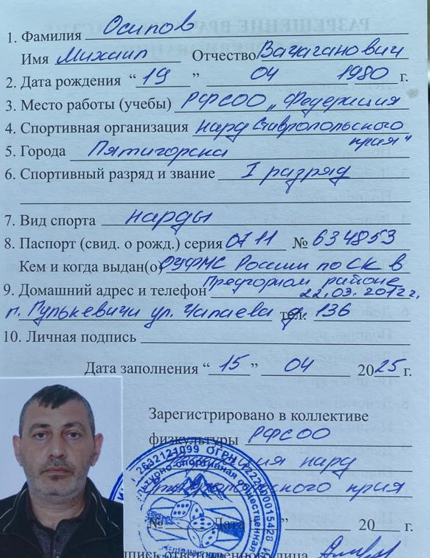 1. Фамилия Осипов
Имя Михаил Отчество Вачаганович
2. Дата рождения “ 19 ” 04 1980 г.
3. Место работы (учебы) РФСОО „Федерация
4. Спортивная организация нард Ставропольского края“
5. Города Пятигорска
6. Спортивный разряд и звание I разряд
7. Вид спорта нарды
8. Паспорт (свид. о рожд.) серия 0711 № 634853
Кем и когда выдан(о) ОУФМС России по СК в
Предгорном районе
9. Домашний адрес и телефон 22.03.2012г.
п. Гулькевичи ул. Чапаева д. 136
тел.
10. Личная подпись
Дата заполнения “ 15 ” 04 2025 г.
Зарегистрировано в коллективе
физкультуры РФСОО
нард
края
№ Дата 20 г.
ответственного лица